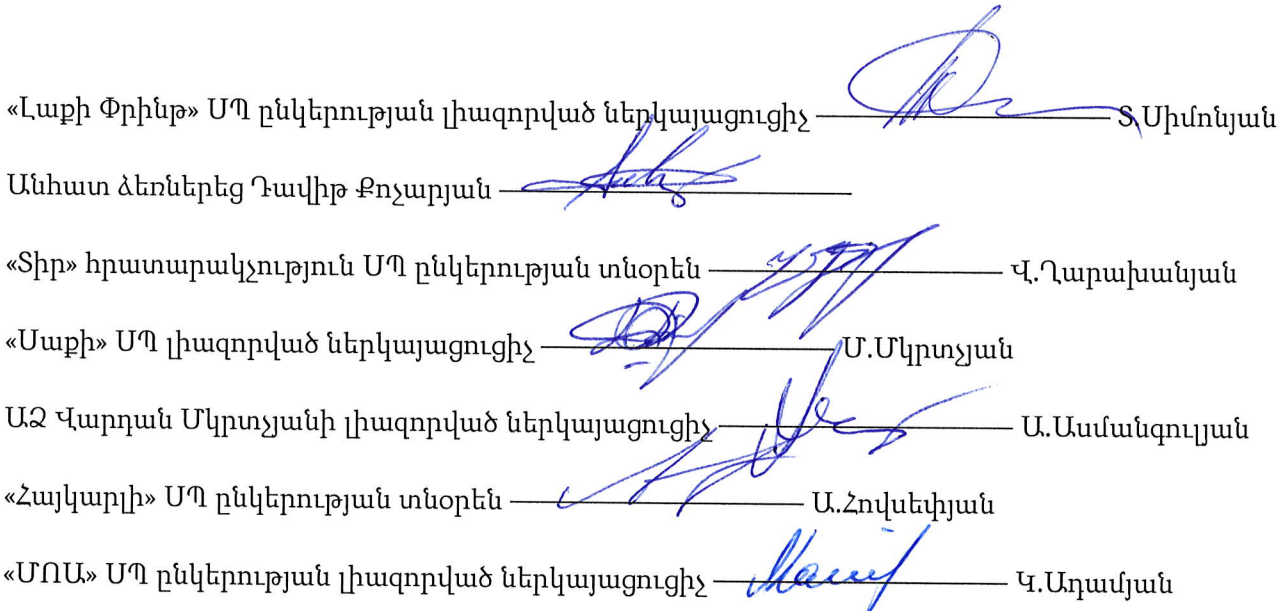 «Լաքի Փրինթ» ՍՊ ընկերության լիազորված ներկայացուցիչ Տ.Սիմոնյան
Անհատ ձեռներեց Դավիթ Քոչարյան
«Տիր» հրատարակչություն ՍՊ ընկերության տնօրեն Վ.Ղարախանյան
«Սաքի» ՍՊ լիազորված ներկայացուցիչ Մ.Մկրտչյան
ԱՁ Վարդան Մկրտչյանի լիազորված ներկայացուցիչ Ա.Ասմանգուլյան
«Հայկարլի» ՍՊ ընկերության տնօրեն Ա.Հովսեփյան
«ՄՈԱ» ՍՊ ընկերության լիազորված ներկայացուցիչ Կ.Ադամյան